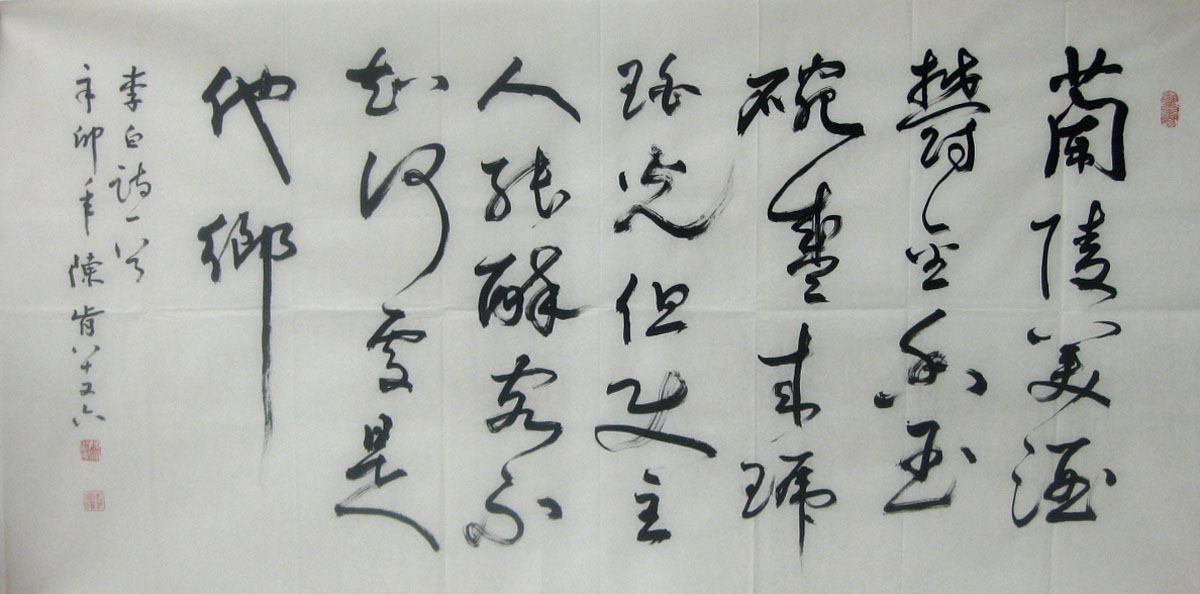 蘭陵美酒
鬱金香玉
碗盛来琥
珀光但使主
人能醉客不
知何處是
他鄉
李白詩一首
辛卯年陳肯八十又六